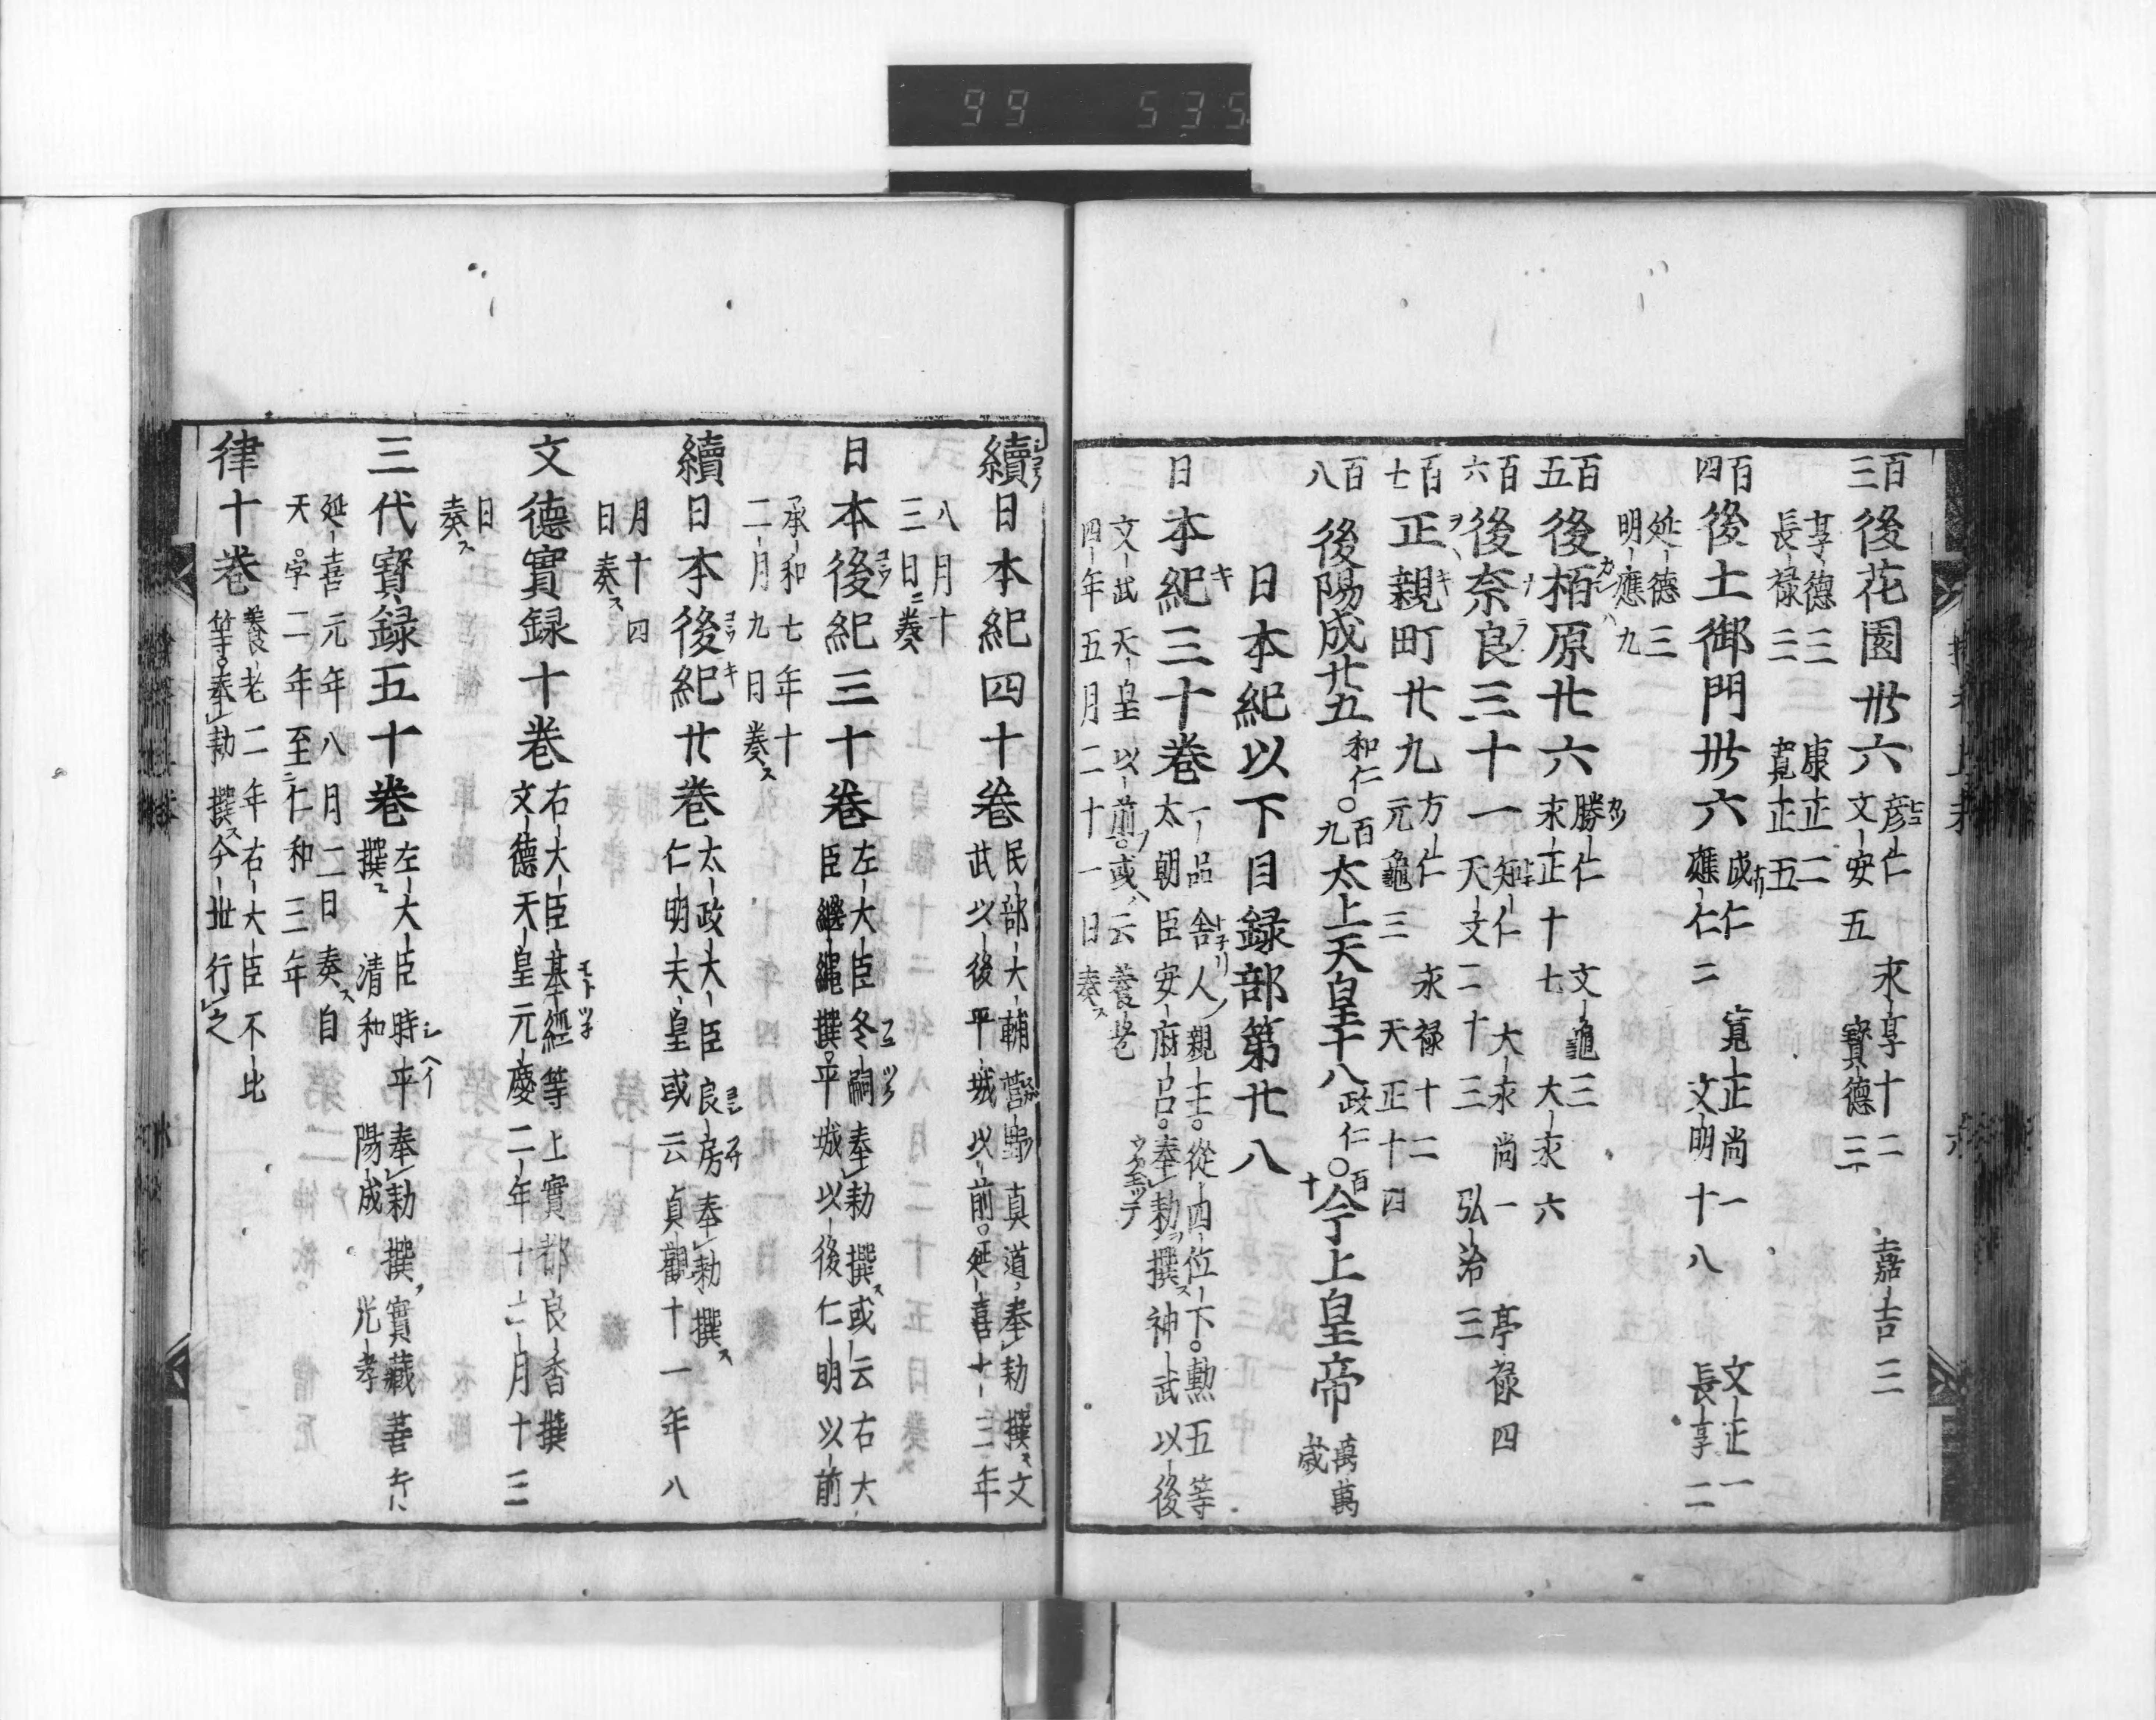 99 535
百三 後花園 卅六 彦仁 文安五 永享十二 寳德三 嘉吉三
享德三 長禄三 康正二 寛正五
百四 後土御門 卅六 成仁 應仁二 寛正尚一 文明十八 文正一 長享二
延德三 明應九
百五 後栢原 廿六 勝仁 永正十七 文龜三 大永六
百六 後奈良 三十一 知仁 天文二十三 大永尚一 弘治三 亭禄四
百七 正親町 廿九 方仁 元龜三 永禄十二 天正十四
百八 後陽成 廿五 和仁〇百九 太上天皇十八 政仁〇百十 今上皇帝 萬萬歳
日本紀以下目録部第廿八
日本紀三十巻 一品舎人親王。從四位下。勲五等太朝臣安府呂。奉勅撰神武以後
文武天皇以前。或云養老四年五月二十一日奏ス
續日本紀四十巻 民部大輔菅野真道奉勅撰ス文武以後平城以前。延喜十三年
八月十三日ニ奏
日本後紀三十巻 左大臣冬嗣奉勅撰ス或云右大臣繼繩撰。平城以後仁明以前
承和七年十二月九日奏ス
續日本後紀廿巻 太政大臣良房奉勅撰ス仁明天皇或云貞觀十一年八
月十四日奏ス
文德實録十巻 右大臣基經等上實都良香撰文德天皇元慶二年十二月十三
日奏ス
三代寳録五十巻 左大臣時平奉勅撰實藏善行撰ス 清和 陽成 光孝
延喜元年八月二日奏ス自天安二年至仁和三年
律十巻 養老二年右大臣不比等。奉勅撰ス今世行之